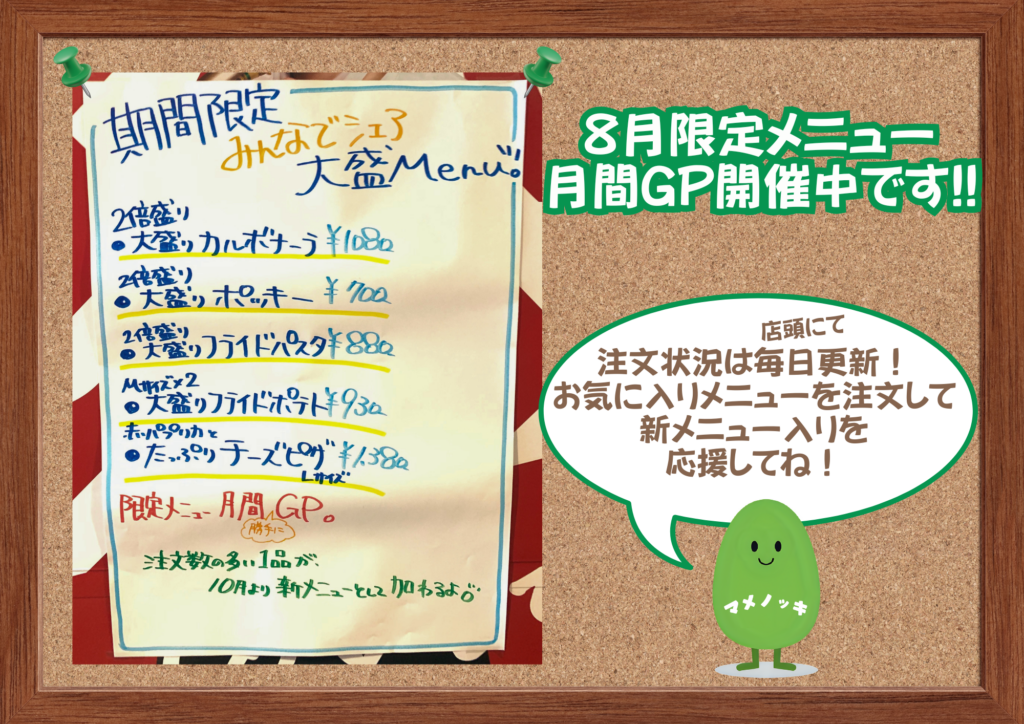 期間限定
みんなでシェア
大盛Menu!
2倍盛り
●大盛りカルボナーラ ¥1080
2倍盛り
●大盛りポッキー ¥700
2倍盛り
●大盛りフライドパスタ ¥880
Mサイズ×2
●大盛りフライドポテト ¥930
赤パプリカと
●たっぷりチーズピザ ¥1,380
Lサイズ
限定メニュー 月間GP。
勝手に
注文数の多い1品が、
10月より新メニューとして加わるよ。
8月限定メニュー
月間GP開催中です!!
店頭にて
注文状況は毎日更新！
お気に入りメニューを注文して
新メニュー入りを
応援してね！
マメノッキ